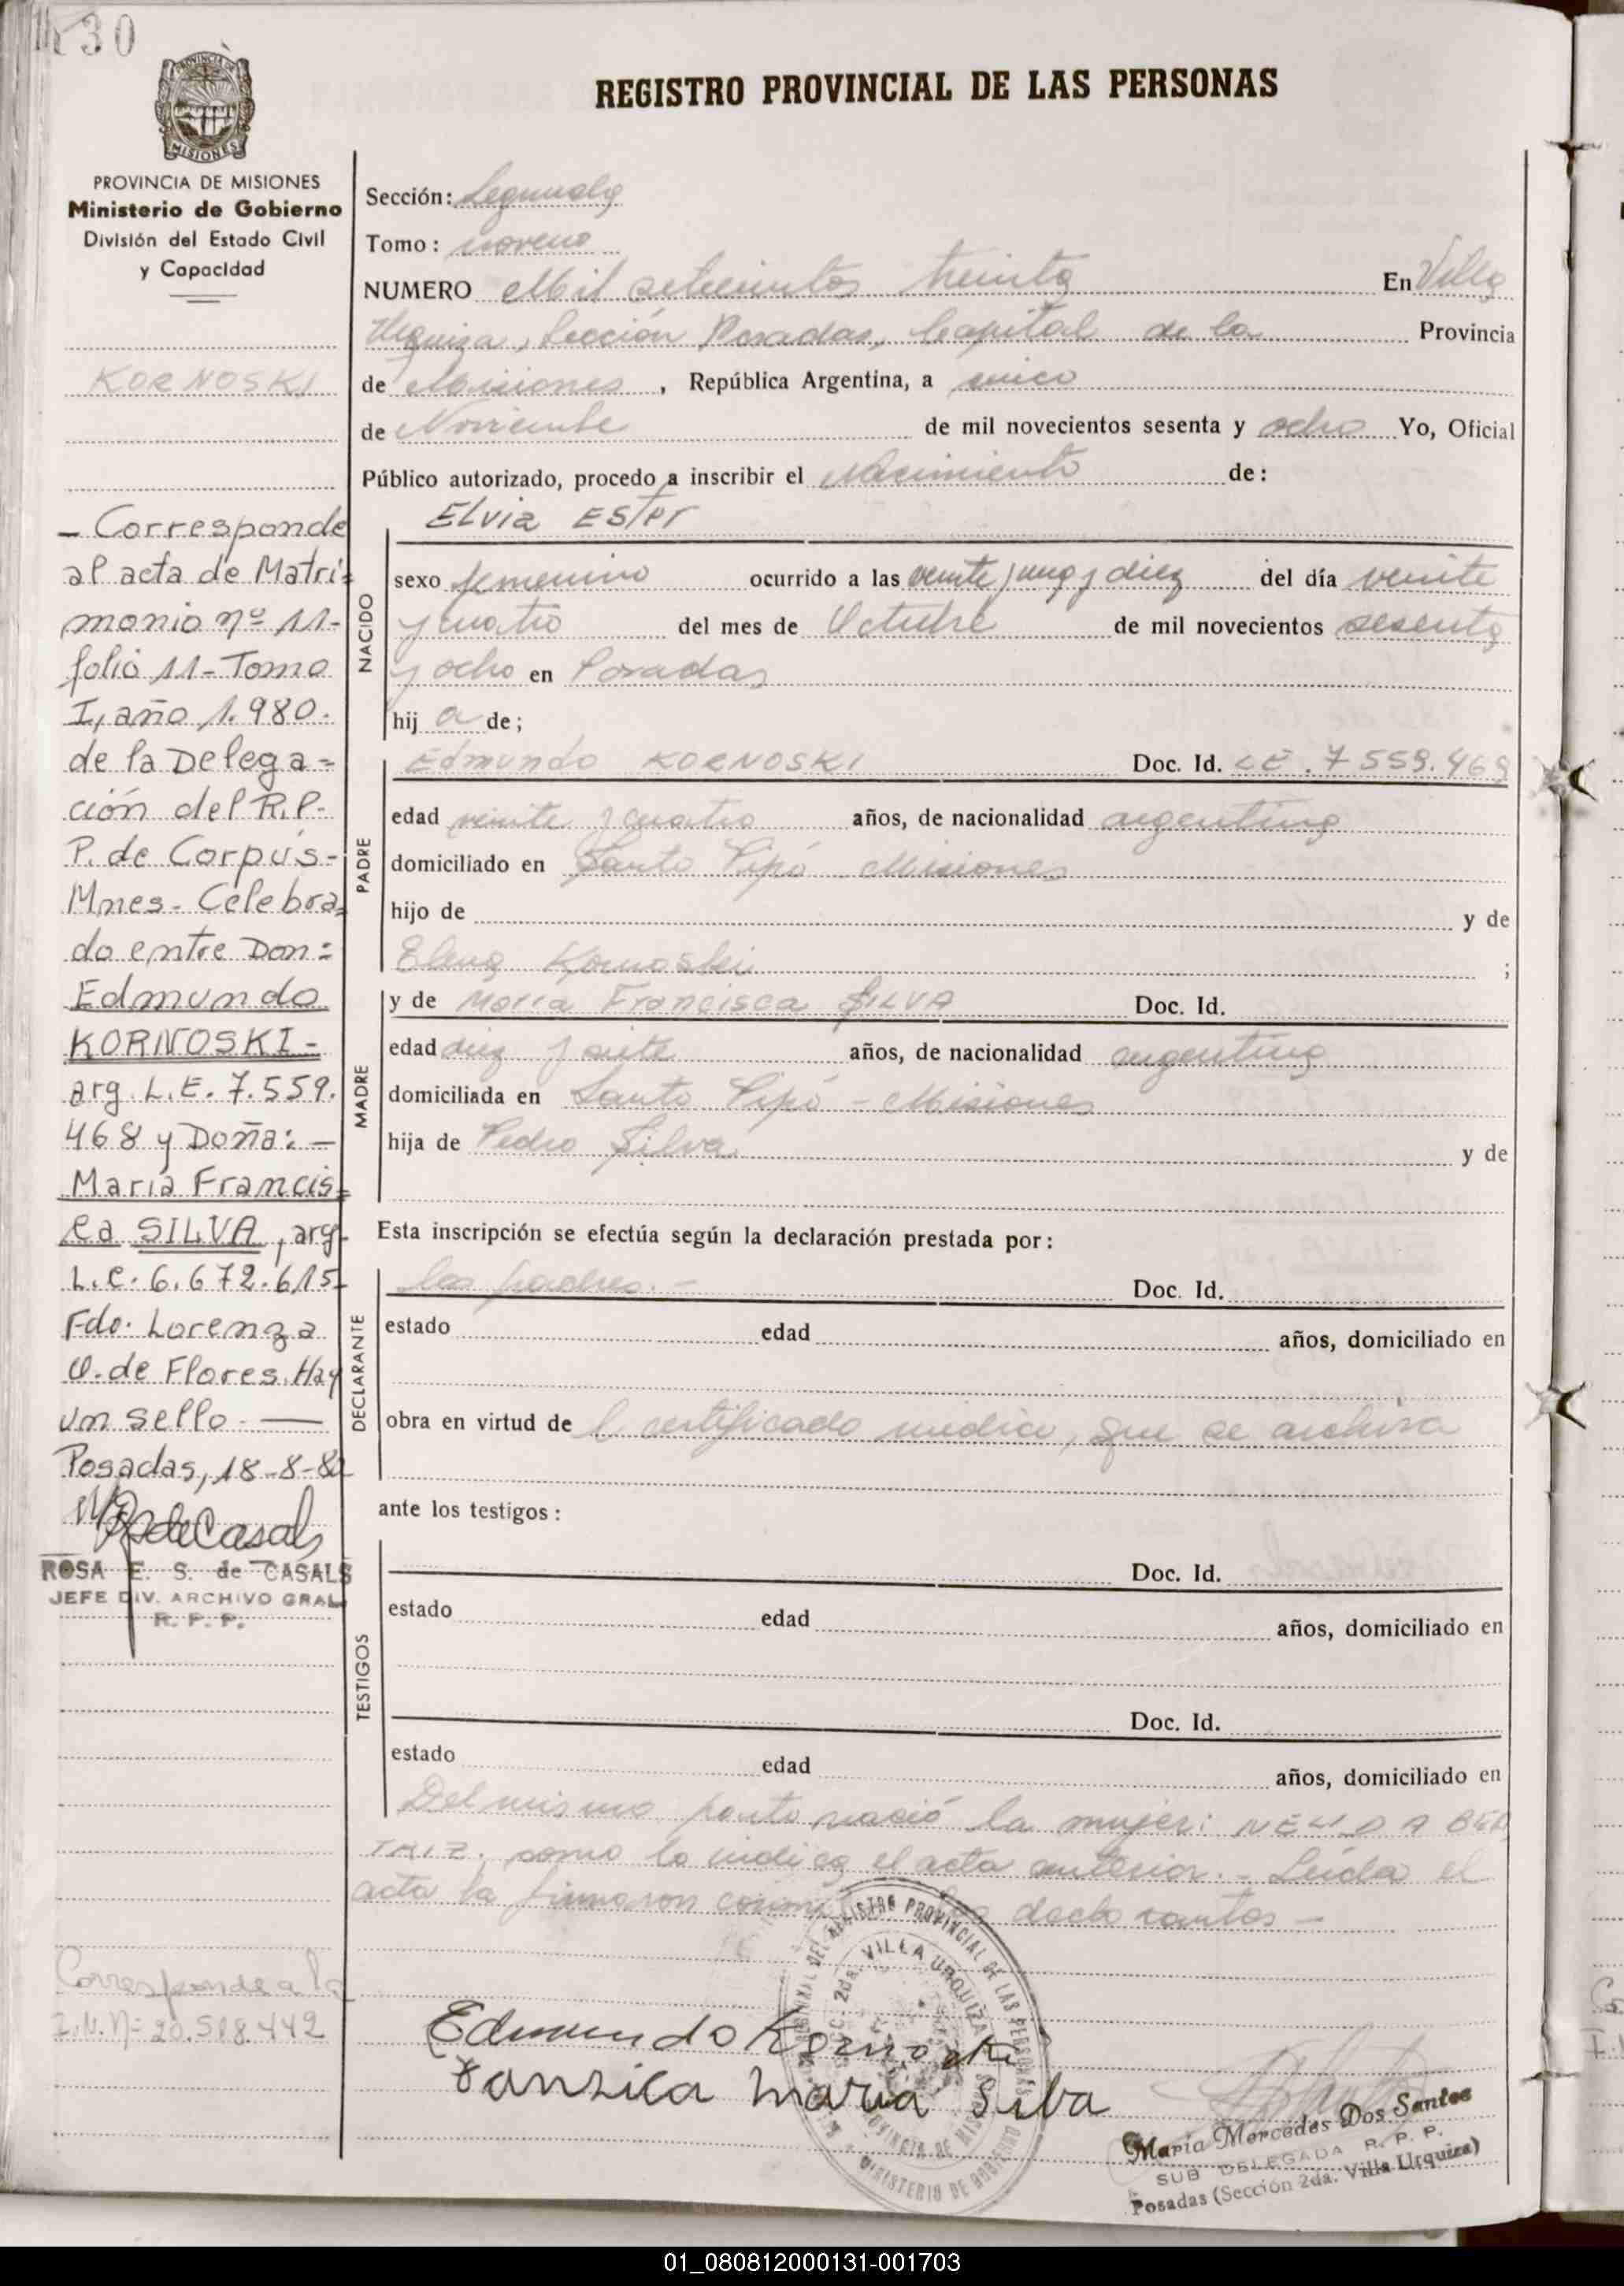 30
PROVINCIA DE MISIONES
Ministerio de Gobierno
División del Estado Civil
y Capacidad
KORNOSKI
- Corresponde
al acta de Matri=
monio nº 11-
folio 11- Tomo
I, año 1.980.
de la Delega=
ción del R.P.
P. de Corpus-
Mnes- Celebra=
do entre Don:
Edmundo
KORNOSKI-
arg. L.E. 7.559.
468 y Doña: -
María Francis=
ca SILVA, arg.
L.C. 6.672.615-
Fdo. Lorenza
V. de Flores. Hay
un sello. -
Posadas, 18-8-82
ROSA E. S. de CASALS
JEFE DIV. ARCHIVO GRAL
R. P. P.
Corresponde a la
I.N. Nº 20.518.442
REGISTRO PROVINCIAL DE LAS PERSONAS
Sección: Segunda
Tomo: noveno
NUMERO Mil setecientos treinta En Villa
Urquiza, Sección Posadas, Capital de la Provincia
de Misiones, República Argentina, a cinco
de Noviembre de mil novecientos sesenta y ocho Yo, Oficial
Público autorizado, procedo a inscribir el Nacimiento de:
Elvia Ester
NACIDO
sexo femenino ocurrido a las veinte y una y diez del día veinte
y cuatro del mes de Octubre de mil novecientos sesenta
y ocho en Posadas
hij a de;
PADRE
Edmundo KORNOSKI Doc. Id. LE. 7.559.468
edad veinte y cuatro años, de nacionalidad argentina
domiciliado en Santo Pipó - Misiones
hijo de y de
Elena Kornoski ;
MADRE
y de María Francisca SILVA Doc. Id.
edad diez y siete años, de nacionalidad argentina
domiciliada en Santo Pipó - Misiones
hija de Pedro Silva y de
Esta inscripción se efectúa según la declaración prestada por:
DECLARANTE
los padres. - Doc. Id.
estado edad años, domiciliado en
obra en virtud de l certificado médico, que se archiva
ante los testigos:
TESTIGOS
Doc. Id.
estado edad años, domiciliado en
Doc. Id.
estado edad años, domiciliado en
Del mismo parto nació la mujer: NELIDA BEA
TRIZ. como lo indica el acta anterior. - Leída el
acta la firmaron declarantes -
Edmundo Kornoski
Fransica Maria Silva
VILLA URQUIZA
María Mercedes Dos Santos
SUB DELEGADA R. P. P.
Posadas (Sección 2da. Villa Urquiza)
01_080812000131-001703